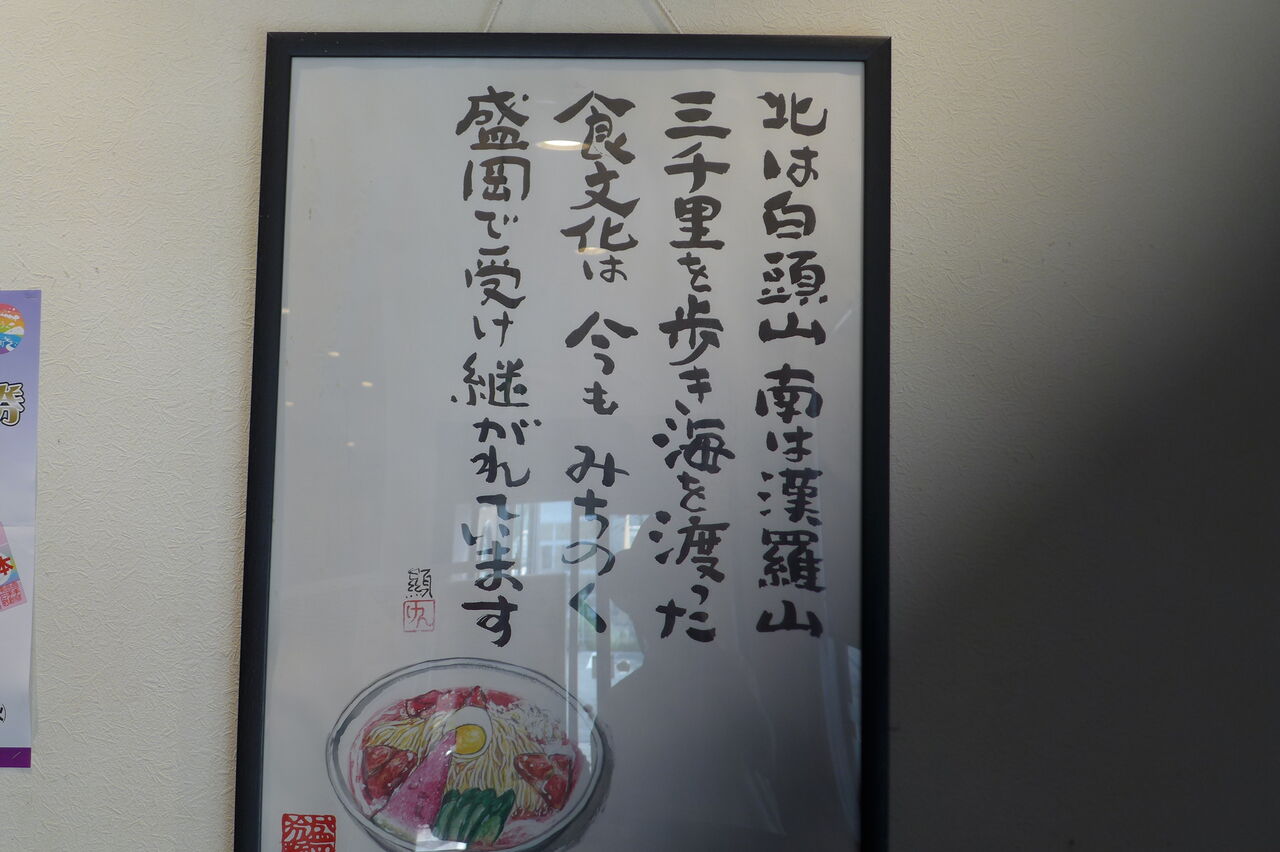 北は白頭山 南は漢羅山
三千里を歩き海を渡った
食文化は 今も みちのく
盛岡で受け継がれています
顕
けん